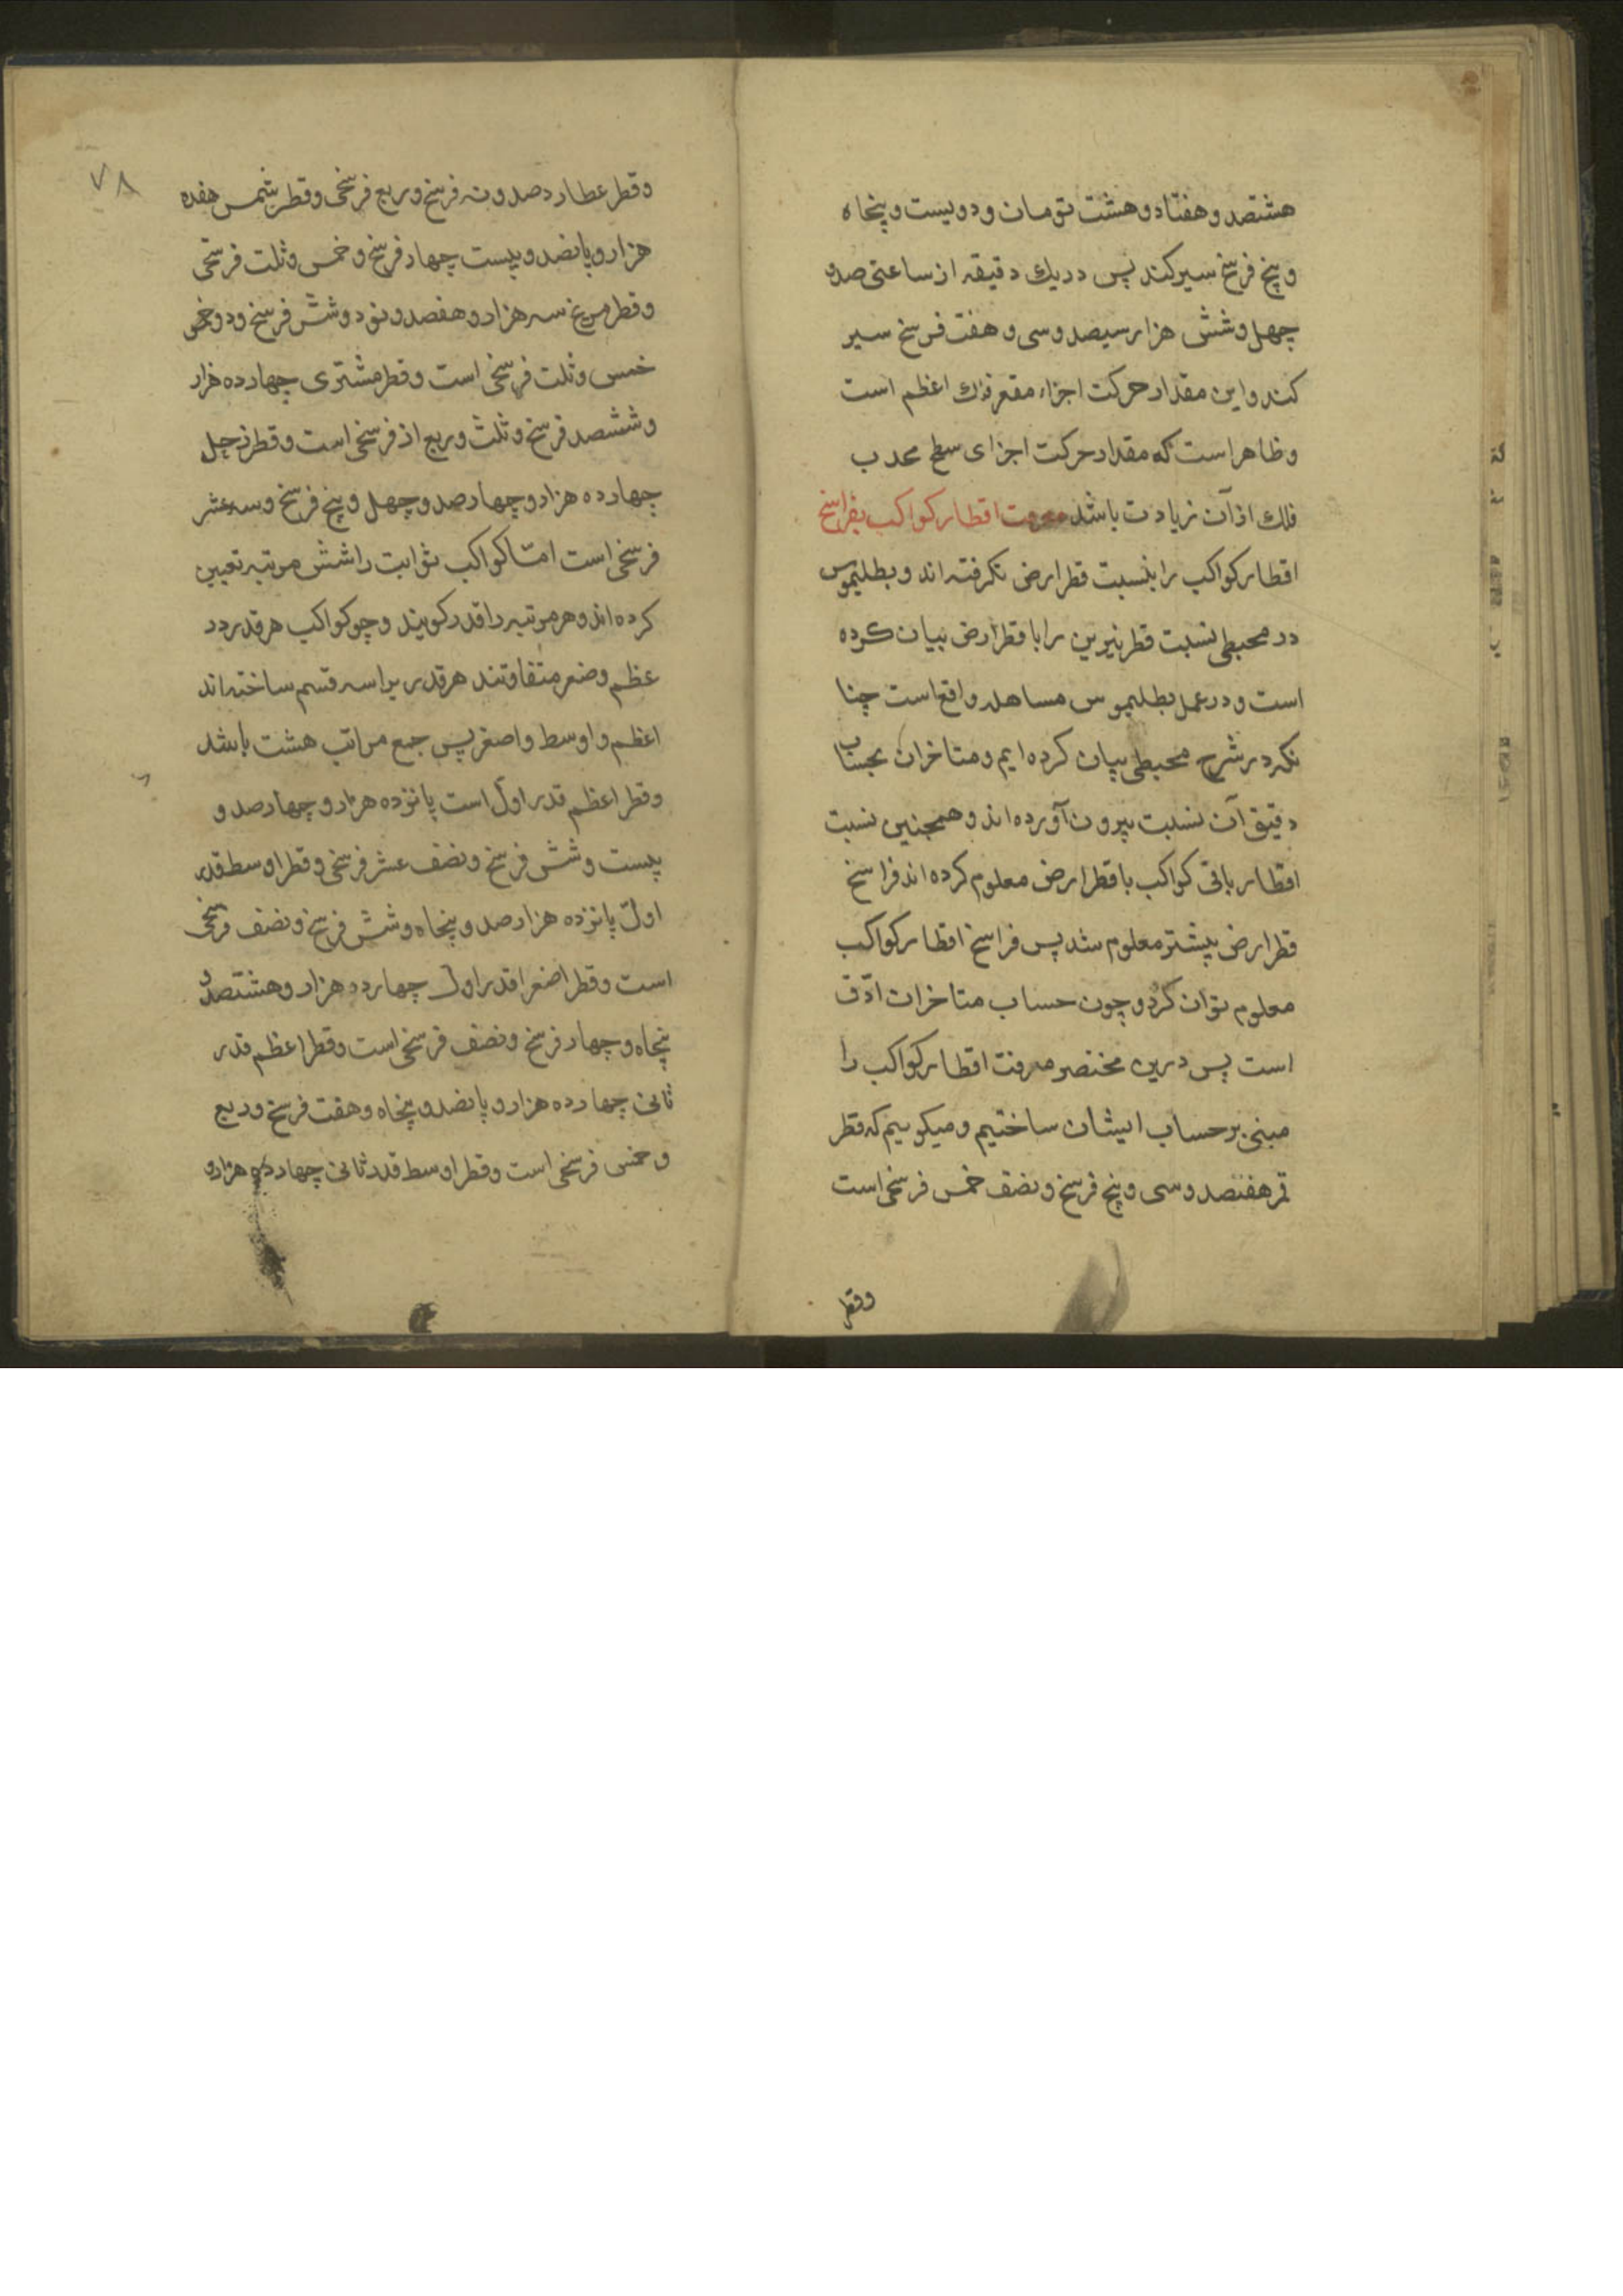 هشتصد و هفتاد و هشت تومان و دویست و پنجاه
و پنج فرسخ سیر کند پس در یك دقیقه از ساعتی صد و
چهل و شش هزار سیصد و سی و هفت فرسخ سیر
کند و این مقدار حرکت اجزاء مقعر فلك اعظم است
و ظاهر است که مقدار حرکت اجزای سطح محدب
فلك از آن زیادت باشد معرفت اقطار کواکب بفراسخ
اقطار کواکب را بنسبت قطر ارض نکرفته اند و بطلیموس
در مجسطی نسبت قطر نیرین را با قطر ارض بیان کرده
است و در عمل بطلیموس مساهله واقع است چنا
نکه در شرح مجسطی بیان کرده ایم و متاخران بحساب
دقیق آن نسبت بیرون آورده اند و همچنین نسبت
اقطار باقی کواکب با قطر ارض معلوم کرده اند فراسخ
قطر ارض پیشتر معلوم شد پس فراسخ اقطار کواکب
معلوم توان کرد و چون حساب متاخران ادّق
است پس درین مختصر معرفت اقطار کواکب را
مبنی بر حساب ایشان ساختیم و میکوییم که قطر
قمر هفتصد و سی و پنج فرسخ و نصف خمس فرسخی است
وقطر
٧٨
و قطر عطارد صد و نه فرسخ و ربع فرسخی و قطر شمس هفده
هزار و پانصد و بیست چهار فرسخ و خمس و ثلت فرسخی
و قطر مریخ سه هزار و هفصد و نود و شش فرسخ و دو خمس
خمس و ثلت فرسخی است و قطر مشتری چهارده هزار
و ششصد فرسخ و ثلث و ربع از فرسخی است و قطر زحل
چهارده هزار و چهار صد و چهل و پنج فرسخ و سه عشر
فرسخی است امّا کواکب ثوابت را شش مرتبه تعیین
کرده اند و هر مرتبه را قدر کویند و چو کواکب هر قدر در
عظم و صغر متفاوتند هر قدر یرا سه قسم ساخته اند
اعظم و اوسط و اصغر پس جمع مراتب هشت باشد
و قطر اعظم قدر اوّل است پانزده هزار و چهار صد و
بیست و شش فرسخ و نصف عشر فرسخی و قطر اوسط قدر
اوّل پانزده هزار صد و پنجاه و شش فرسخ و نصف فرسخی
است و قطر اصغر اقدر اول چهارده هزار و هشتصد و
پنجاه و چهار فرسخ و نصف فرسخی است و قطر اعظم قدر
ثانی چهارده هزار و پانصد و پنجاه و هفت فرسخ و ربع
و خمس فرسخی است و قطر اوسط قدر ثانی چهارده هزار و